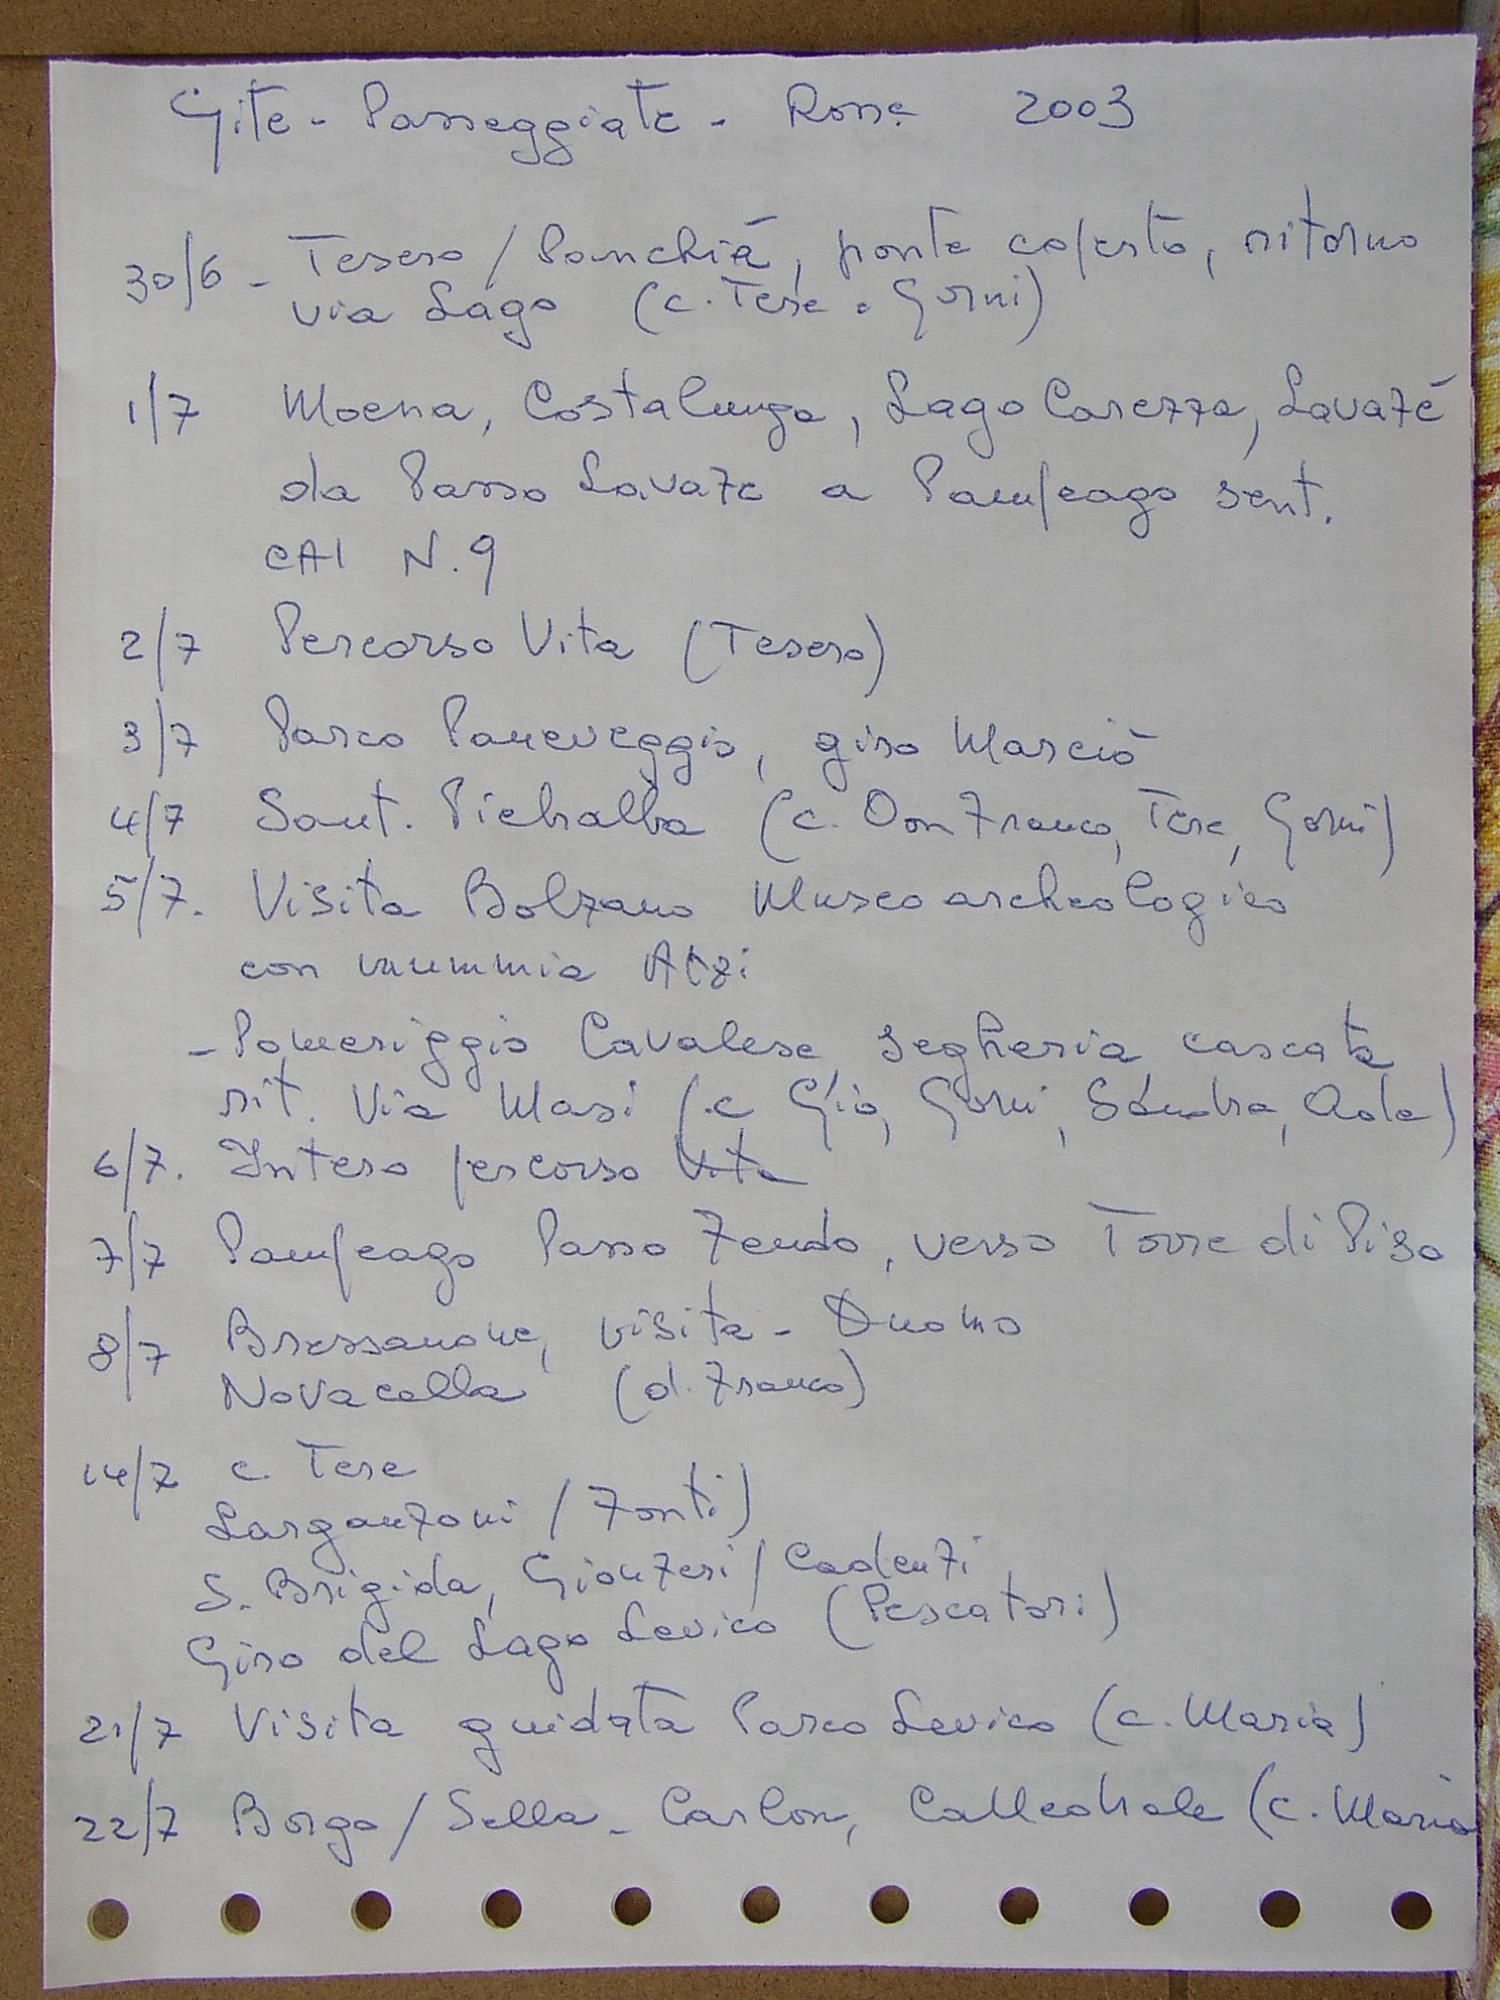 Gite - Passeggiate - Rosa 2003
30/6 - Tesero / Panchià, ponte coperto, ritorno
via Lago (c. Tere. Gorni)
1/7 Moena, Costalunga, Lago Carezza, Lavazé
da Passo Lavazé a Pampeago sent.
CAI N. 9
2/7 Percorso Vita (Tesero)
3/7 Parco Paneveggio, giro Marciò
4/7 Sant. Pietralba (c. Don Franco, Tere, Gorni)
5/7. Visita Bolzano Museo archeologico
con mummia
- Pomeriggio Cavalese segheria cascata
rit. Via Masi (c Giò, Gorni, Sandra, Ada)
6/7. Intero percorso Vita
7/7 Pampeago Passo Feudo, verso Torre di Pisa
8/7 Bressanone, visita - Duomo
Novacella (d. Franco)
14/7 c. Tere
Larganzoni / Fonti)
S. Brigida, Gionzeri / Cadenzi
Giro del Lago Levico (Pescatori)
21/7 Visita guidata Parco Levico (c. Maria)
22/7 Borgo / Sella - Carlon, Cattedrale (c. Maria